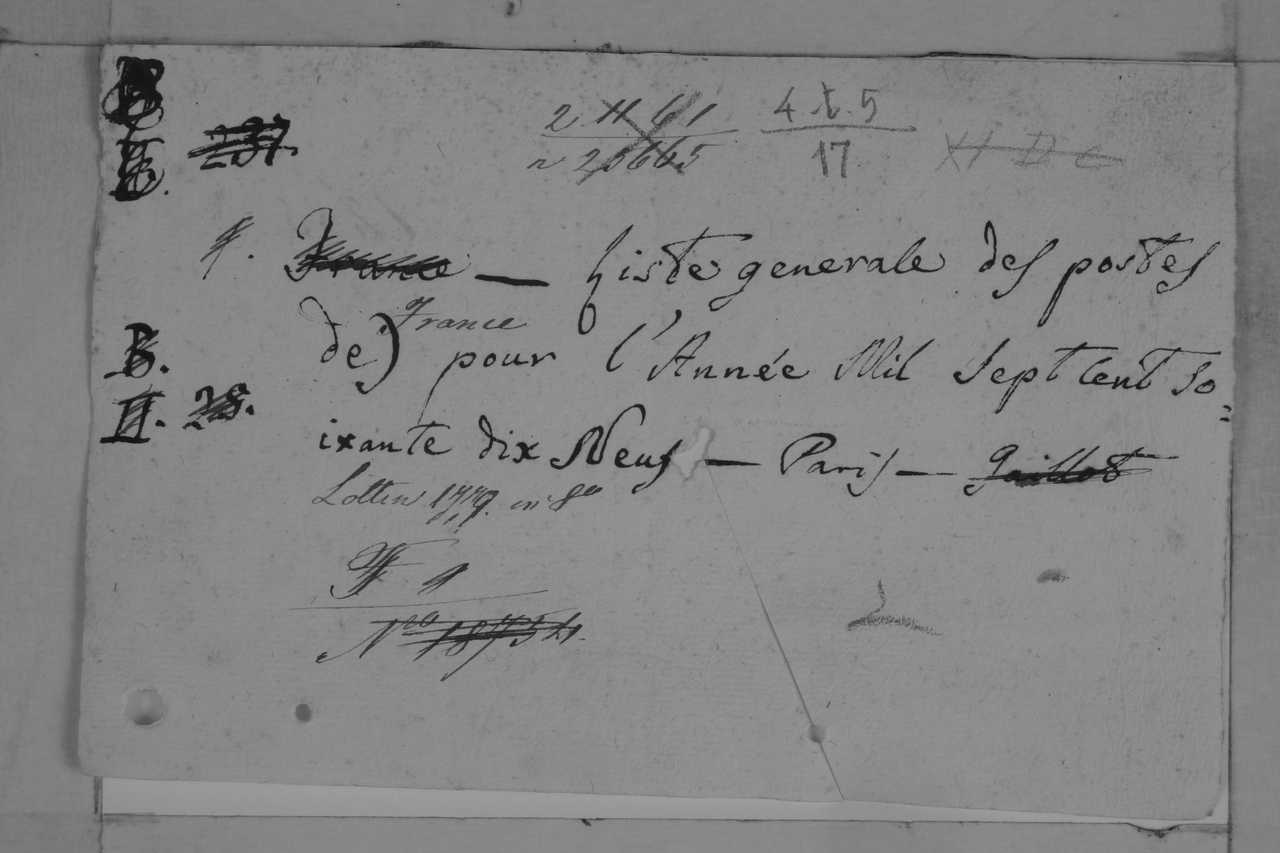 237.
2 H 61
4 t. 5
n 25665
17
XI D c
1. France — Liste generale des postes
de) France pour l'Année Mil Sept Cent So=
B.
II. 28.
ixante dix Neuf — Paris — Gaillot
Lottin 1779. in 8o
N.ro 18754.